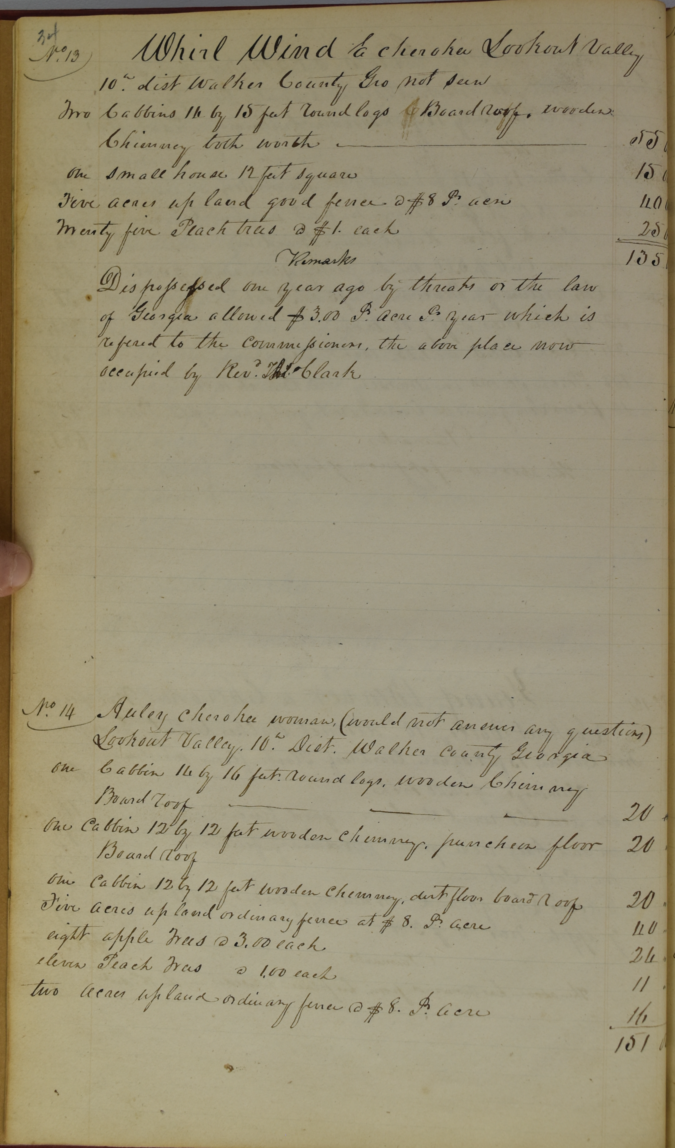 34
No. 13 Whirl Wind a cherokee Lookout Valley
10th dist Walker County Geo not seen
Two Cabbins 14 by 15 feet round logs Board roof, wooden
Chimney both worth 55
one small house 12 feet square 15
Five acres up land good fence @ $8 Pr acre 40
Twenty five Peach trees @ $1. each 25
Remarks 135
Dispossessed one year ago by threats or the law
of Georgia allowed $3.00 Pr acre Pr year which is
refered to the commissioners, the above place now
occupied by Revd. Clark
No. 14 cherokee woman, (would not answer any questions)
Lookout Valley. 10th Dist. Walker county Georgia
one Cabbin 14 by 16 feet round logs, wooden Chimney
Board roof 20
one Cabbin 12 by 12 feet wooden chimney, puncheon floor 20
Board roof
one Cabbin 12 by 12 feet wooden chimney, dirt floor board roof 20
Five acres up land ordinary fence at $8. Pr acre 40
eight apple trees @ 3.00 each 24
eleven Peach trees @ 1.00 each 11
two acres upland ordinary fence @ $8. Pr acre 16
151